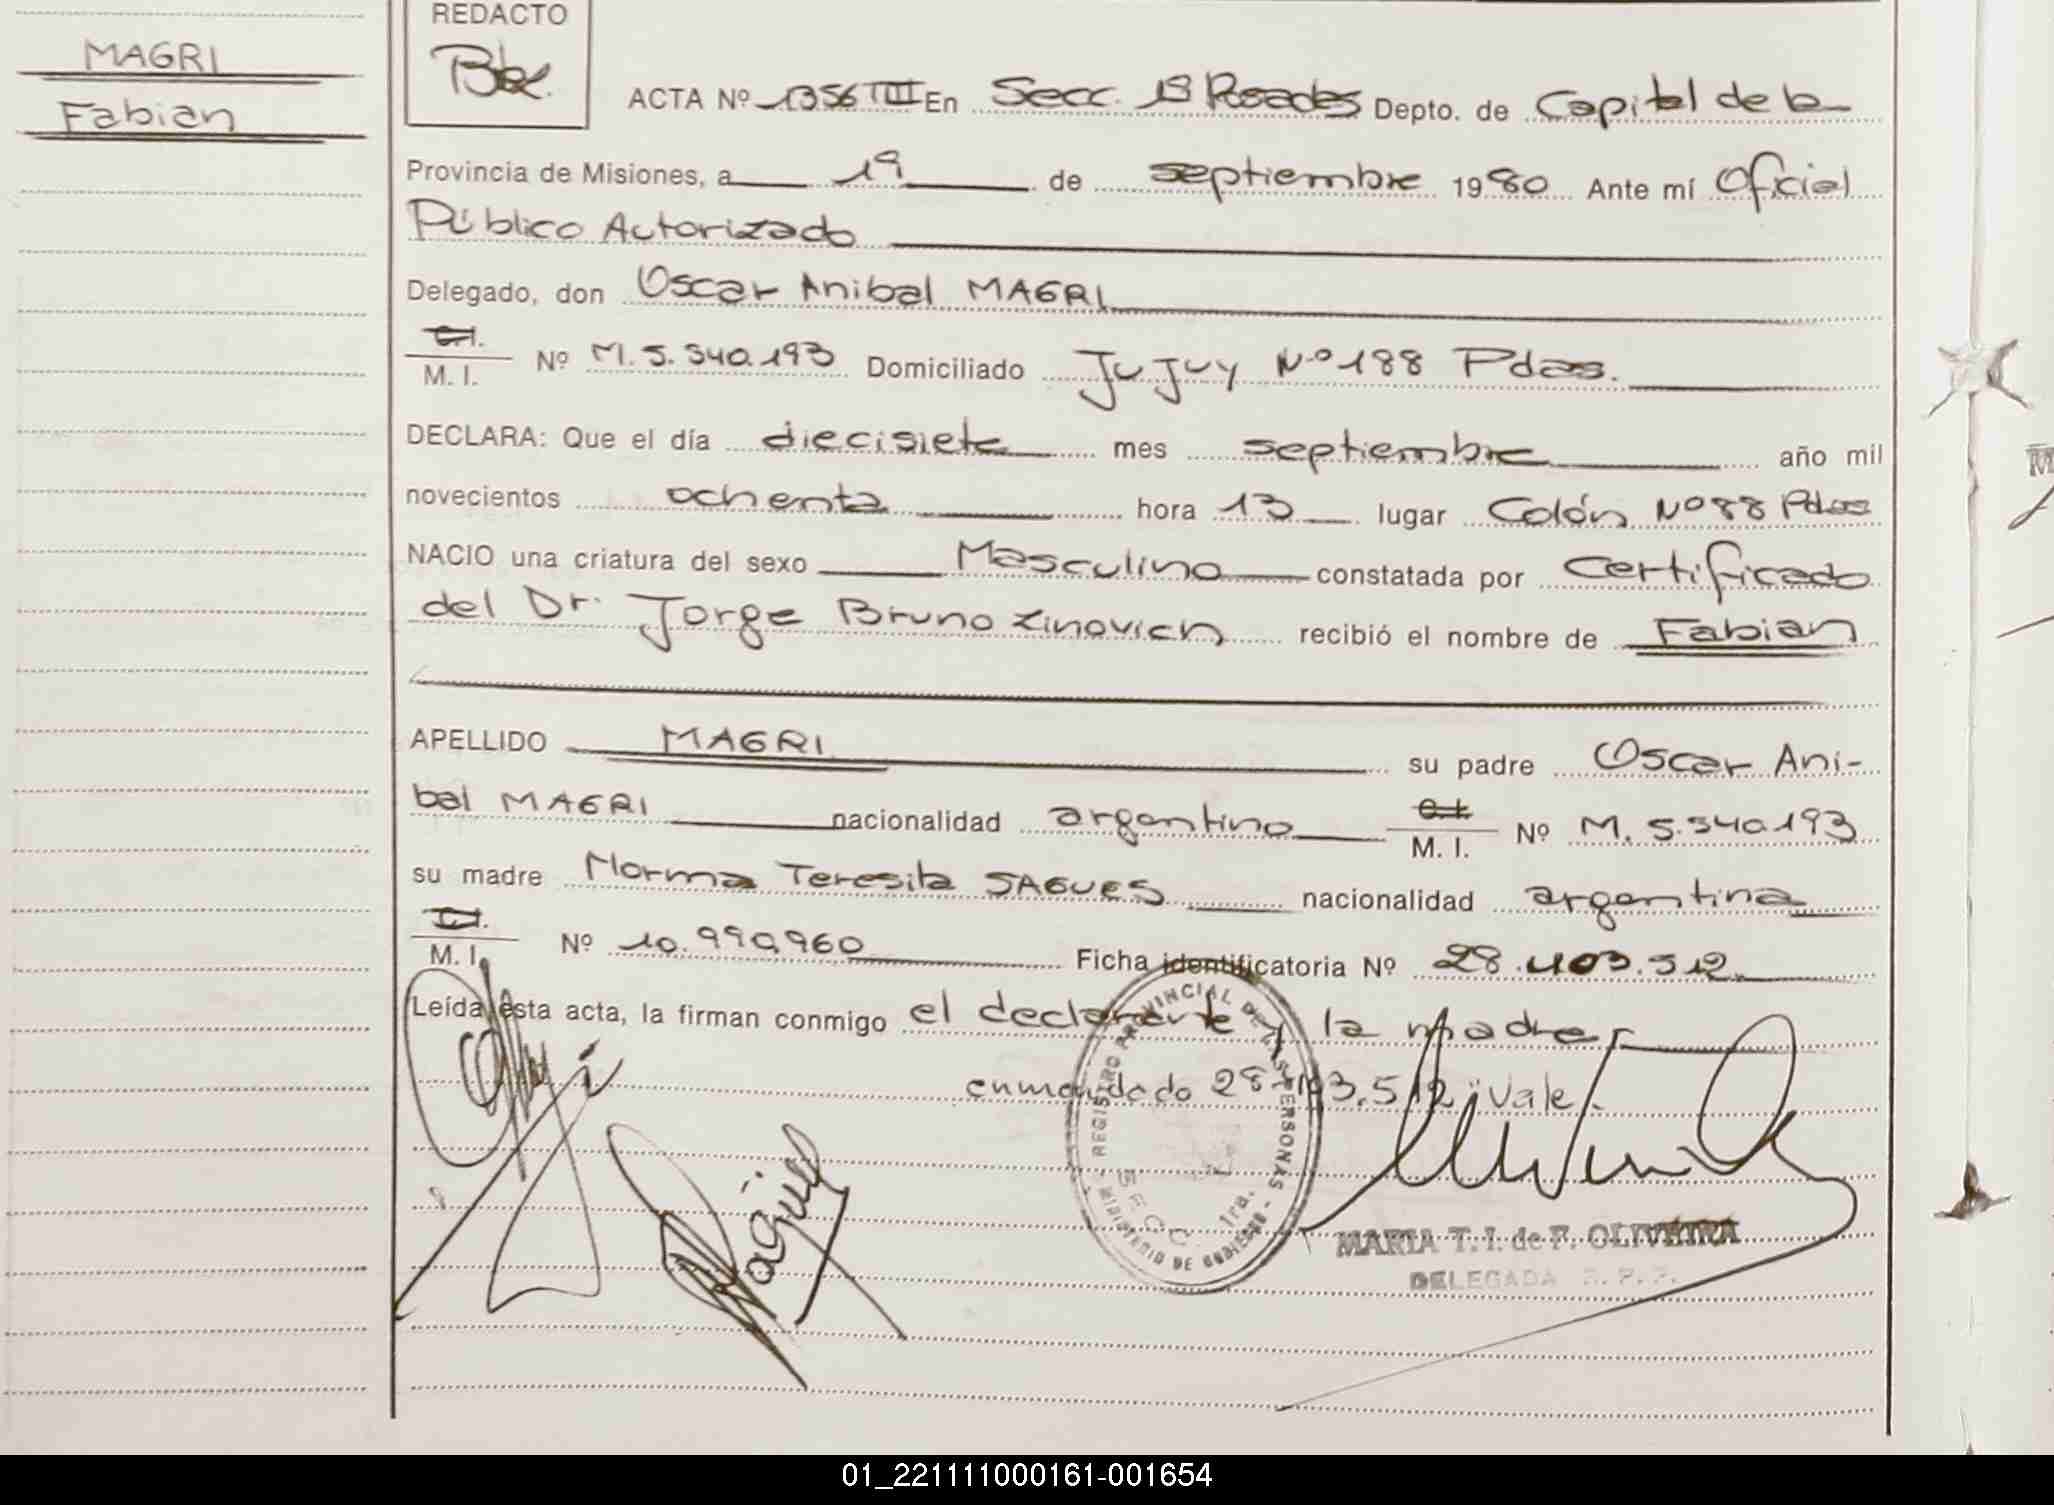 MAGRI
Fabian
REDACTO
ACTA Nº 1356 TIII En Secc. 1ª Posadas Depto. de Capital de la
Provincia de Misiones, a 19 de septiembre 1980 Ante mí Oficial
Público Autorizado
Delegado, don Oscar Anibal MAGRI
C.I.
M. I. Nº M. 5.340.193 Domiciliado Jujuy Nº 188 Pdas.
DECLARA: Que el día diecisiete mes septiembre año mil
novecientos ochenta hora 13 lugar Colón Nº 88 Pdas
NACIO una criatura del sexo Masculino constatada por Certificado
del Dr. Jorge Bruno Zinovich recibió el nombre de Fabian
APELLIDO MAGRI su padre Oscar Ani-
bal MAGRI nacionalidad argentino C.I. M. I. Nº M. 5.340.193
su madre Norma Teresita SAGUES nacionalidad argentina
C.I.
M. I. Nº 10.990.960 Ficha identificatoria Nº 28.403.512
Leída esta acta, la firman conmigo el declarante y la madre
enmendado 28.403.512: Vale.
REGISTRO PROVINCIAL DE LAS PERSONAS
SECC. 1ra.
MINISTERIO DE GOBIERNO
MARIA T. I. de F. OLIVEIRA
DELEGADA R. P. P.
01_221111000161-001654